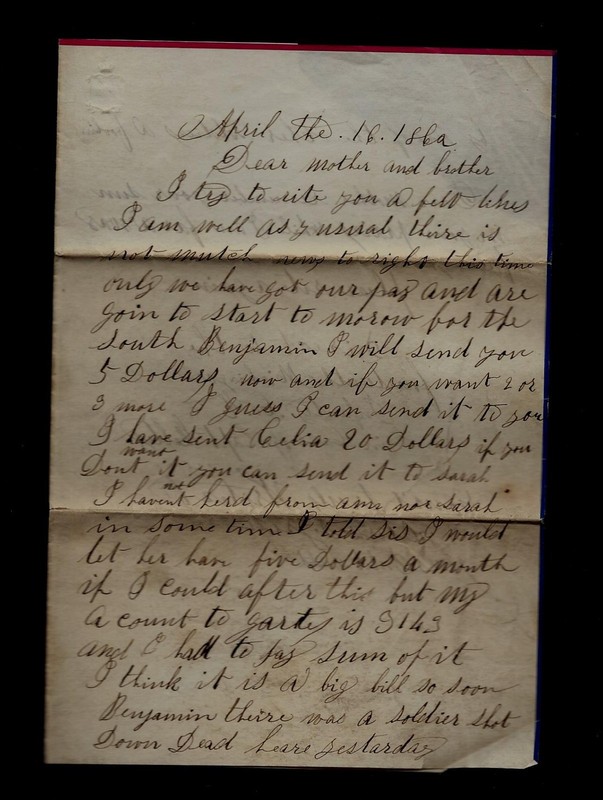 April the. 16. 1862
Dear mother and brother
I try to rite you a few lines
I am well as yusural theire is
not mutch news to right this time
only we have got our pay and are
goin to start to morow for the
South Benjamin I will send you
5 Dollars now and if you want 2 or
3 more I guess I can send it to you
I have sent Celia 20 Dollars if you
Dont want it you can send it to sarah
I havent not herd from ann nor sarah
in some time I told sis I would
let her have five Dollars a month
if I could after this but my
a count to is 3143
and I had to pay sum of it
I think it is a big bill so soon
Benjamin theire was a soldier shot
Down Dead heare yestarday